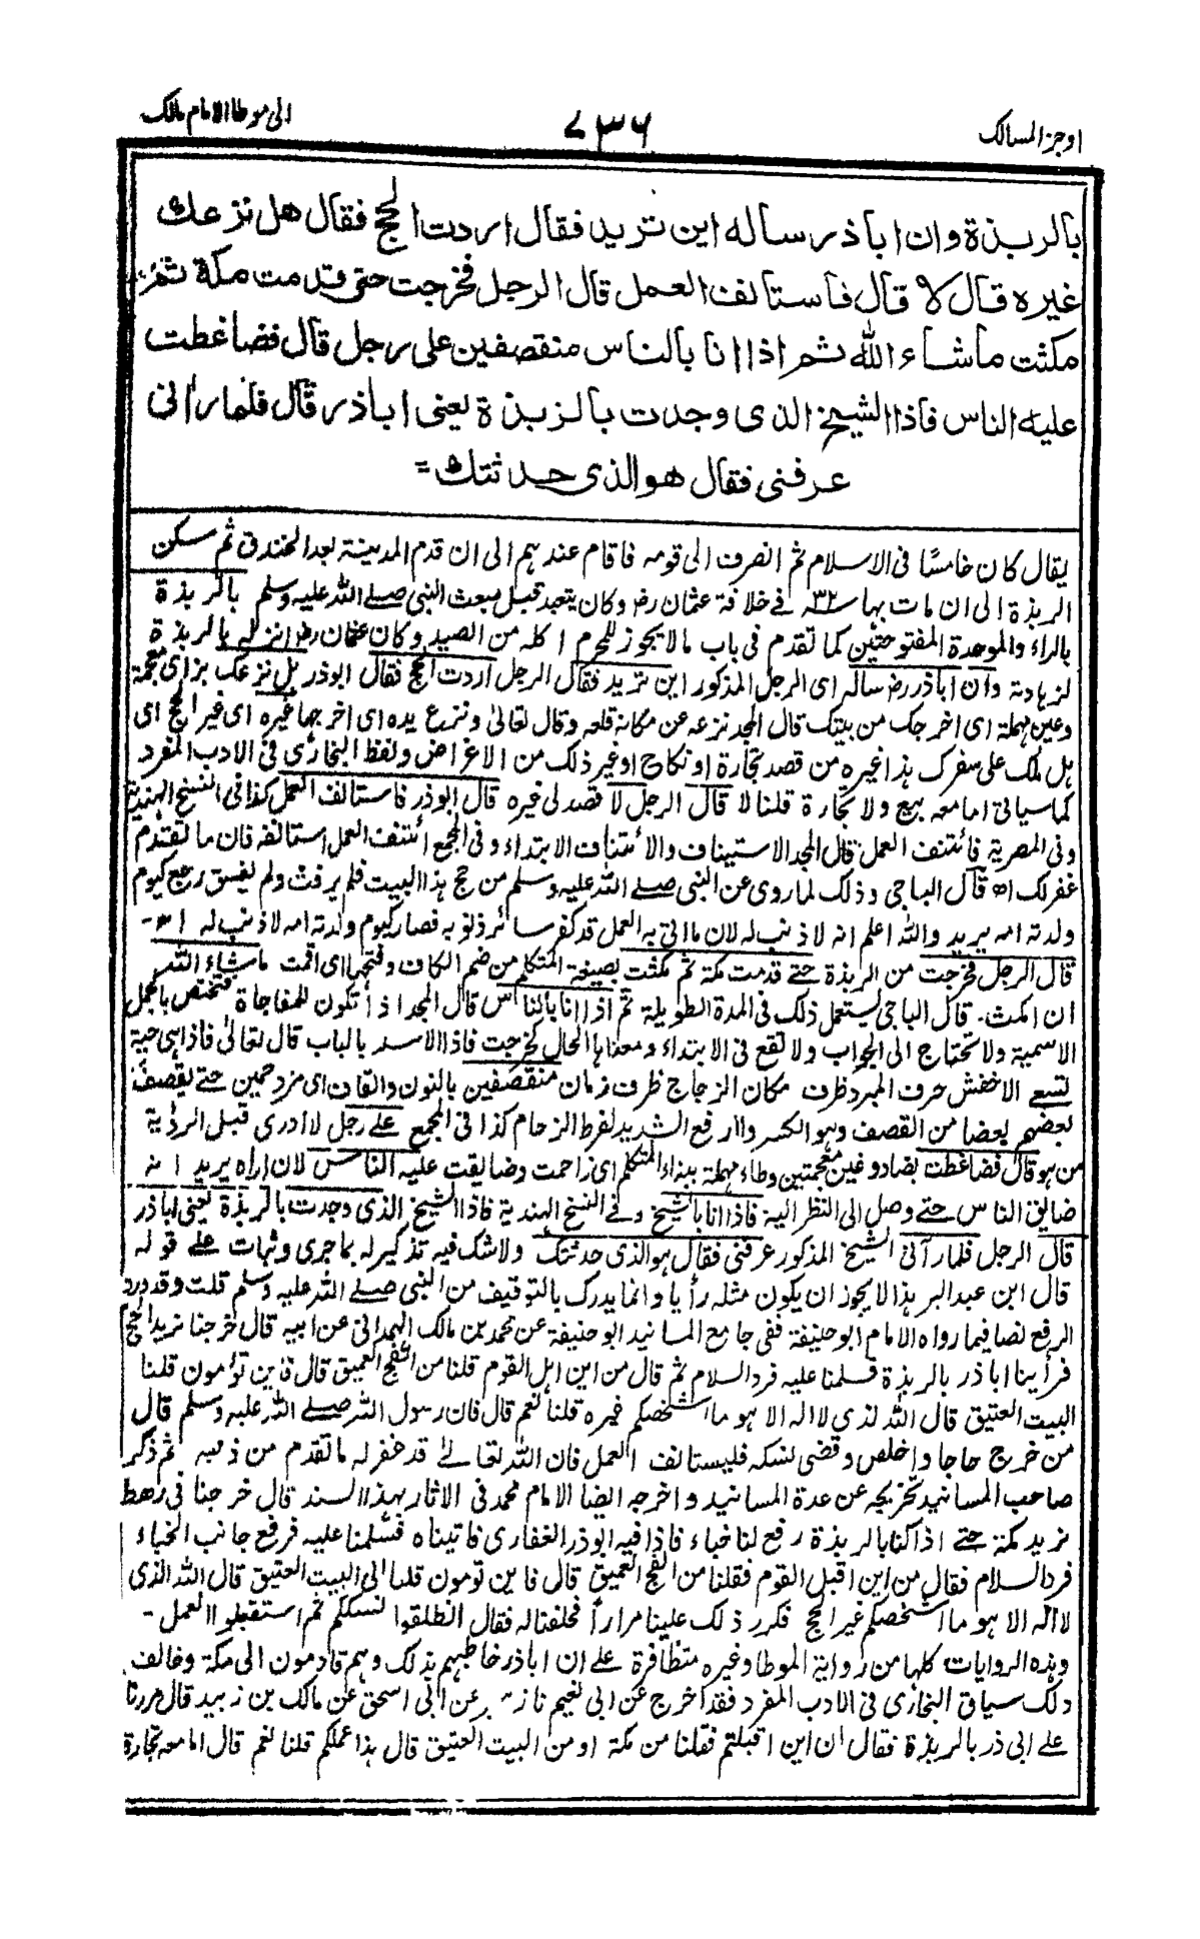 اوجز المسالک
۷۳۶
الی موطا الامام مالک
بالربذة وان اباذر ساله این تريد فقال اردت الحج فقال هل نزعك
غيره قال لا قال فاستانف العمل قال الرجل فخرجت حتى قدمت مكة ثم
مكثت ماشاء الله ثم اذا انا بالناس منقصفين على رجل قال فضاغطت
عليه الناس فاذا الشيخ الذي وجدت بالربذة يعنى اباذر قال فلما رانی
عرفنى فقال هو الذي حدثتك =
يقال كان خامسًا فى الاسلام ثم انصرف الى قومه فاقام عندهم الى ان قدم المدينة بعد الخندق ثم سكن
الربذة الى ان مات بها سنة ۳۲ فے خلافة عثمان رض وكان يتعبد قبل مبعث النبى صلے الله عليه وسلم بالربذة
بالراء والموحدة المفتوحتين كما تقدم فى باب مالا يجوز للمحرم اكله من الصيد وكان عثمان رض انزله بالربذة
لزهادته وان اباذر رض ساله اى الرجل المذكور اين تريد فقال الرجل اردت الحج فقال ابوذر هل نزعك بزاى معجمة
وعين مهملة اى اخرجك من بيتك قال المجد نزعه عن مكانه قلعه وقال تعالىٰ ونزع يده اى اخرجها غيره اى غير الحج اى
هل لك على سفرك هذا غيره من قصد تجارة او نكاح او غير ذلك من الاغراض ولفظ البخارى فى الادب المفرد
كما سياتى امامعه بيع ولا تجارة قلنا لا قال الرجل لا قصد لى غيره قال ابوذر فاستانف العمل كذا فى النسخ الهندية
وفى المصرية فائتنف العمل قال المجد الاستيناف والائتناف الابتداء وفى المجمع ائتنف العمل استانفه فان ما تقدم
غفر لك اه قال الباجى وذلك لما روى عن النبى صلے الله عليه وسلم من حج هذا البيت فلم يرفث ولم يفسق رجع كيوم
ولدته امه يريد والله اعلم انه لا ذنب له لان ما اتى به العمل قد كفر سائر ذنوبه فصار كيوم ولدته امه لا ذنب له اه -
قال الرجل فخرجت من الربذة حتے قدمت مكة ثم مكثت بصيغة المتكلم من ضم الكاف وفتحها اى اقمت ماشاء الله
ان امكث - قال الباجى يستعمل ذلك فى المدة الطويلة ثم اذا انا بالناس قال المجد اذا تكون للمفاجاة فتختص بالجمل
الاسمية ولا تحتاج الى الجواب ولا تقع فى الابتداء ومعناها الحال كخرجت فاذا الاسد بالباب قال تعالىٰ فاذا هى حية
تسعے الاخفش حرف المبرد ظرف مكان الزجاج ظرف زمان منقصفين بالنون والقاف اى مزدحمين حتے يقصف
بعضهم بعضا من القصف وهو الكسر والدفع الشديد لفرط الزحام كذا فى المجمع علے رجل لا ادرى قبل الرؤية
من هو قال فضاغطت بضاد وغين معجمتين وطاء مهملة بتاء المتكلم اى زاحمت وضايقت عليه الناس لان اراه يريد انه
ضايق الناس حتے وصل الى النظر اليه فاذا انا بالشيخ وفے النسخ الهندية فاذا الشيخ الذى وجدت بالربذة يعنى اباذر
قال الرجل فلما رآنى الشيخ المذكور عرفنى فقال هو الذى حدثتك ولا شك فيه تذكير له بما جرى وثبات علے قوله
قال ابن عبد البر هذا لا يجوز ان يكون مثله رأيا وانما يدرك بالتوقيف من النبى صلے الله عليه وسلم قلت وقد ورد
الرفع نصا فيما رواه الامام ابو حنيفة ففى جامع المسانيد ابو حنيفة عن محمد بن مالك الهمدانى عن ابيه قال خرجنا نريد الحج
فرأينا اباذر بالربذة فسلمنا عليه فرد السلام ثم قال من اين اهل القوم قلنا من الفج العميق قال فاين تؤمون قلنا
البيت العتيق قال الله لذى لا اله الا هو ما اشخصكم غيره قلنا نعم قال فان رسول الله صلے الله عليه وسلم قال
من خرج حاجا واخلص وقضى نسكه فليستانف العمل فان الله تعالےٰ قد غفر له ما تقدم من ذنبه ثم ذكر
صاحب المسانيد تخريجه عن عدة المسانيد واخرجه ايضا الامام محمد فى الاثار بهذا السند قال خرجنا فى رهط
نريد مكة حتے اذا كنا بالربذة رفع لنا خباء فاذا فيه ابوذر الغفارى فاتيناه فسلمنا عليه فرفع جانب الخباء
فرد السلام فقال من اين اقبل القوم فقلنا من الفج العميق قال فاين تؤمون قلنا الى البيت العتيق قال الله الذى
لا اله الا هو ما اشخصكم غير الحج فكرر ذلك علينا مرارا فحلفنا له فقال انطلقوا نسككم ثم استقبلوا العمل -
وهذه الروايات كلها من رواية الموطا وغيره متظافرة علے ان اباذر خاطبهم بذلك وهم قادمون الى مكة وخالف
ذلك سياق البخارى فى الادب المفرد فقد اخرج عن ابى نعيم عن ابى اسحق عن مالك بن زبيد قال مررنا
علے ابى ذر بالربذة فقال من اين اقبلتم فقلنا من مكة او من البيت العتيق قال هذا عملكم قلنا نعم قال امامعه تجارة